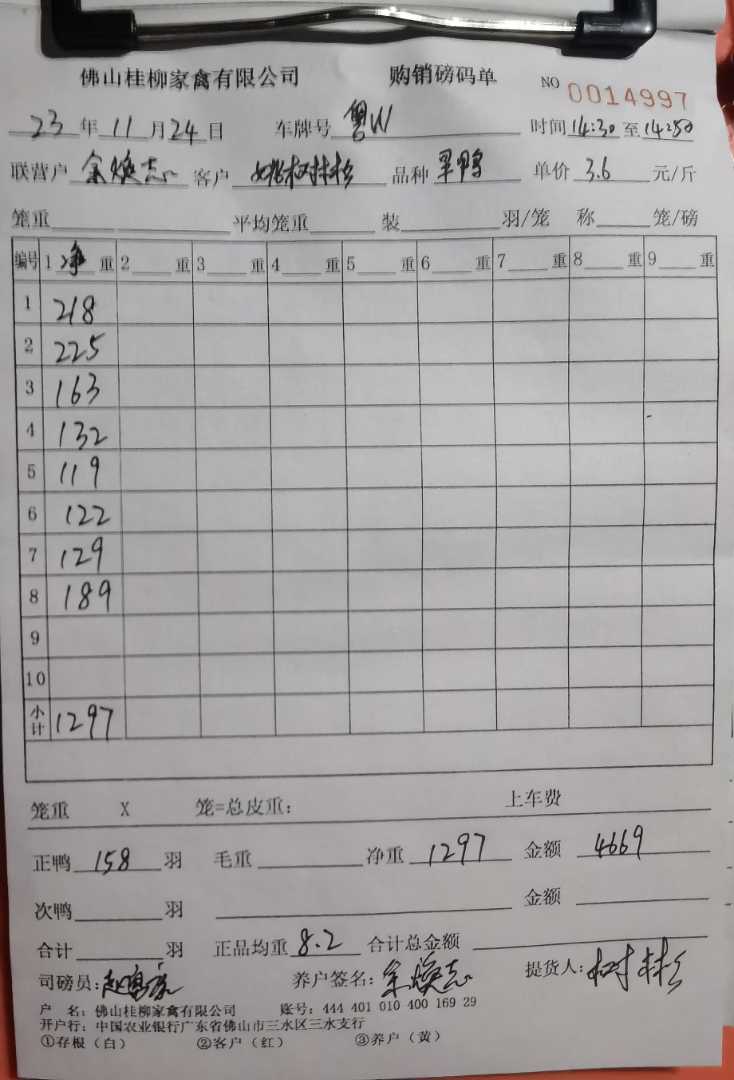 佛山桂柳家禽有限公司 购销磅码单 NO 0014997
23年11月24日 车牌号 粤W 时间14:30至14:50
联营户 余焕志 客户 姚树彬 品种 旱鸭 单价 3.6 元/斤
笼重 平均笼重 装 羽/笼 称 笼/磅
编号 1 净 重 2 重 3 重 4 重 5 重 6 重 7 重 8 重 9 重
1 218
2 225
3 163
4 132
5 119
6 122
7 129
8 189
9
10
小计 1297
笼重 X 笼=总皮重: 上车费
正鸭 158 羽 毛重 净重 1297 金额 4669
次鸭 羽 金额
合计 羽 正品均重 8.2 合计总金额
司磅员: 养户签名: 余焕志 提货人: 树彬
户 名: 佛山桂柳家禽有限公司 账号: 444 401 010 400 169 29
开户行: 中国农业银行广东省佛山市三水区三水支行
①存根(白) ②客户(红) ③养户(黄)